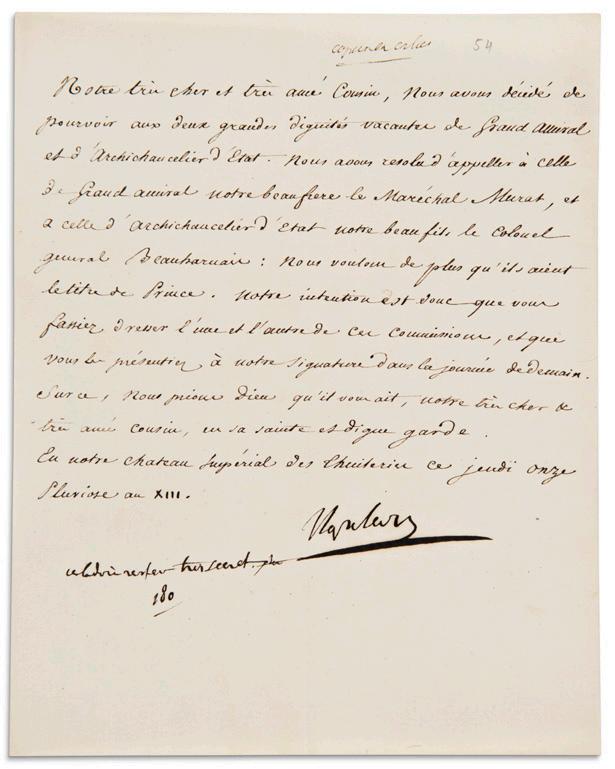 54
Notre très cher et très amé Cousin, Nous avons décidé de
pourvoir aux deux grandes dignités vacantes de Grand amiral
et d'Archichancelier d'Etat. Nous avons resolu d'appeller à celle
de Grand amiral notre beaufrere le Maréchal Murat, et
à celle d'Archichancelier d'Etat notre beaufils le Colonel
general Beauharnais : Nous voulons de plus qu'ils aient
le titre de Prince. Notre intention est donc que vous
fassiez dresser l'une et l'autre de ces Commissions, et que
vous les présentiez à notre signature dans la journée de demain.
Sur ce, Nous prions Dieu qu'il vous ait, notre très cher &
très amé cousin, en sa sainte et digne garde.
En notre chateau Impérial des Thuileries ce jeudi onze
Pluviose an XIII.
Napoleon
cela doit rester tres secret.